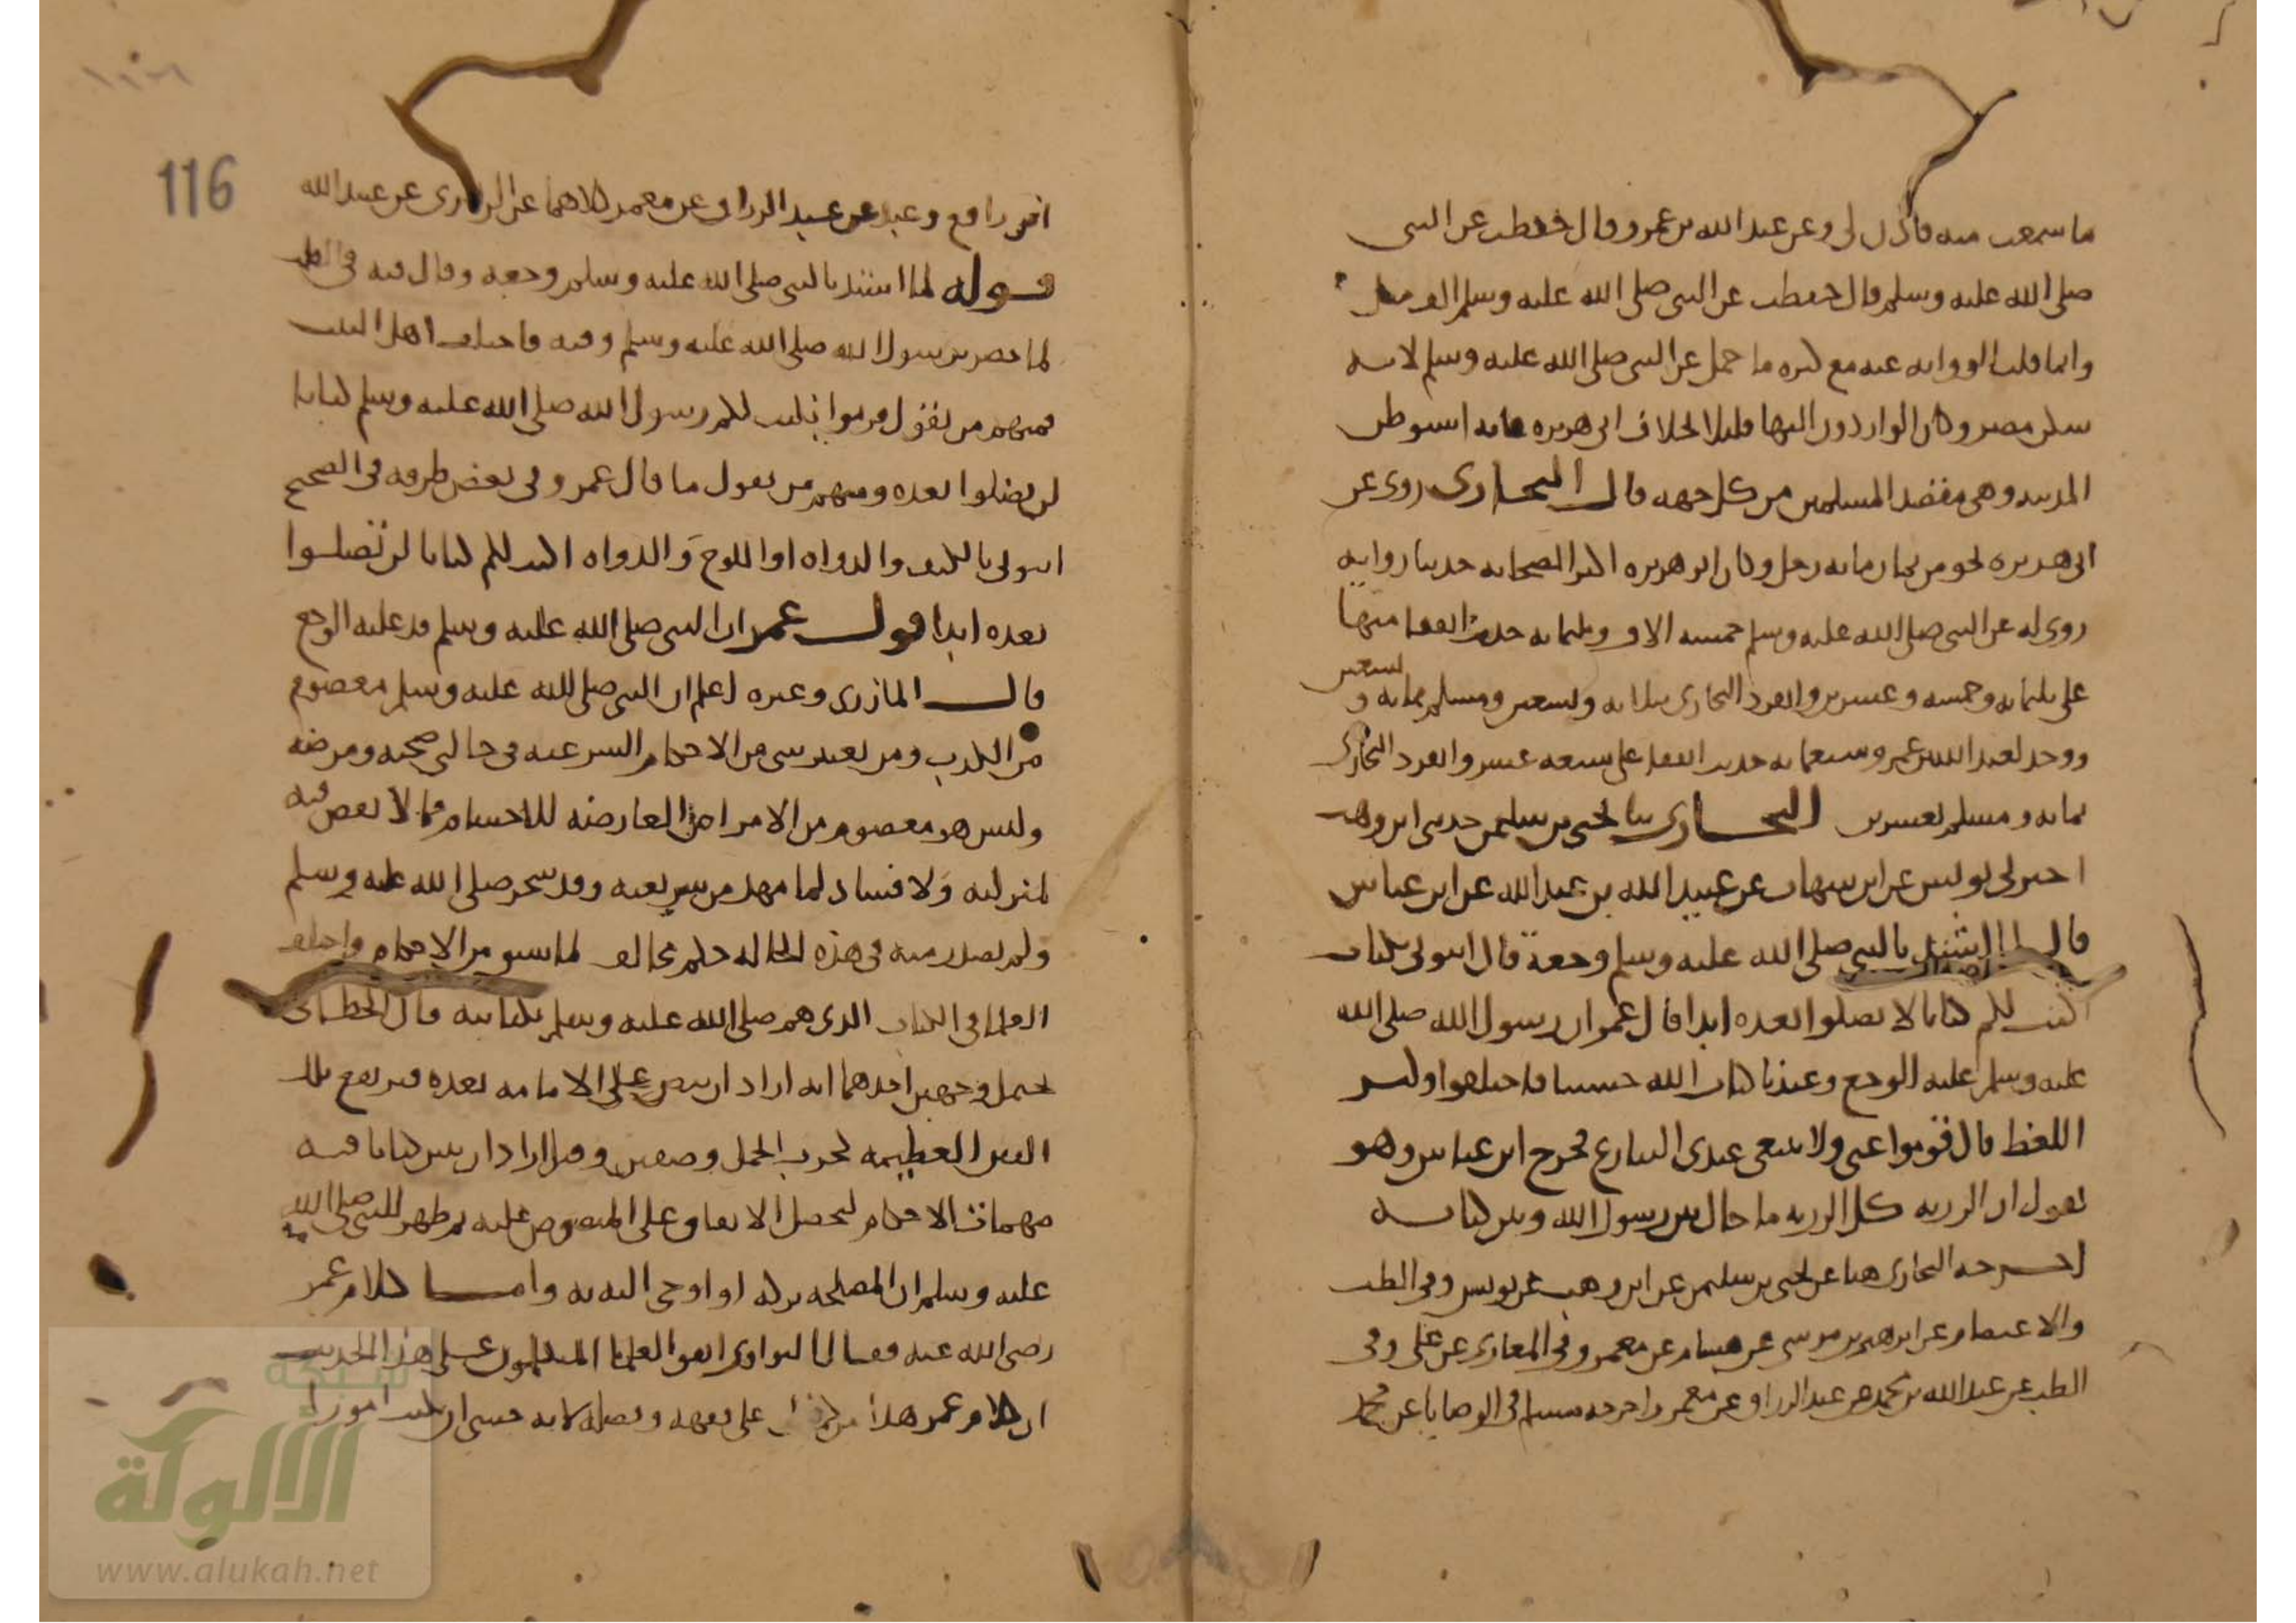 ما سمعت منه فاذن لي وعن عبد الله بن عمرو قال حفظت عن النبي
صلى الله عليه وسلم قال حفظت عن النبي صلى الله عليه وسلم الف مثل
وانما قلت الرواية عنه مع كثرة ما حمل عن النبي صلى الله عليه وسلم لانه
سكن مصر وكان الواردون اليها قليلا بخلاف ابي هريرة فانه استوطن
المدينة وهي مقصد المسلمين من كل جهة قال البخاري روى عن
ابي هريرة نحو من ثمان مائة رجل وكان ابو هريرة اكثر الصحابة حديثا رواية
روي له عن النبي صلى الله عليه وسلم خمسة الاف وثلثمائة حديث اتفقا منها
على ثلثمائة وخمسة وعشرين وانفرد البخاري بثلاثة وتسعين ومسلم بمائة و تسعين
ووجد لعبد الله بن عمرو سبعمائة حديث اتفقا على سبعة عشر وانفرد البخاري
بمائة ومسلم بعشرين البخاري ثنا يحيى بن سليمن حدثني ابن وهب
اخبرني يونس عن ابن شهاب عن عبيد الله بن عبد الله عن ابن عباس
قال لما اشتد بالنبي صلى الله عليه وسلم وجعه قال ائتوني بكتاب
اكتب لكم كتابا لا تضلوا بعده ابدا قال عمر ان رسول الله صلى الله
عليه وسلم عليه الوجع وعندنا كتاب الله حسبنا فاختلفوا وكثر
اللغط قال قوموا عني ولا ينبغي عندي التنازع فخرج ابن عباس وهو
يقول ان الرزية كل الرزية ما حال بين رسول الله وبين كتابه
اخرجه البخاري هنا عن يحيى بن سليمن عن ابن وهب عن يونس وفي الطب
والاعتصام عن ابرهيم بن موسى عن هشام عن معمر وفي المغازي عن علي وفي
الطب عن عبد الله بن محمد عن عبد الرزاق عن معمر واخرجه مسلم في الوصايا عن محمد
116
ابن رافع وعبد عن عبد الرزاق عن معمر كلاهما عن الزهري عن عبيد الله
قوله لما اشتد بالنبي صلى الله عليه وسلم وجعه وقال فيه في الطب
لما حضر رسول الله صلى الله عليه وسلم وفيه فاختلف اهل البيت
فمنهم من يقول قربوا يكتب لكم رسول الله صلى الله عليه وسلم كتابا
لن تضلوا بعده ومنهم من يقول ما قال عمر وفي بعض طرقه في الصحيح
ائتوني بالكتف والدواة او اللوح والدواة اكتب لكم كتابا لن تضلوا
بعده ابدا قول عمر ان النبي صلى الله عليه وسلم قد غلبه الوجع
قال المازري وغيره اعلم ان النبي صلى الله عليه وسلم معصوم
من الكذب ومن تغيير شي من الاحكام الشرعية في حالي صحته ومرضه
وليس هو معصوم من الامراض العارضة للاجسام مما لا نقص فيه
لمنزلته ولا فساد لما مهد من شريعته وقد سحر صلى الله عليه وسلم
ولم يصدر منه في هذه الحالة حكم مخالف لما سبق من الاحكام واختلف
العلما في الكتاب الذي هم صلى الله عليه وسلم بكتابته قال الخطابي
يحتمل وجهين احدهما انه اراد ان ينص على الامامة بعده فترتفع تلك
الفتن العظيمة كحرب الجمل وصفين وقيل اراد ان يبين كتابا فيه
مهمات الاحكام ليحصل الاتفاق على المنصوص عليه ثم ظهر للنبي صلى الله
عليه وسلم ان المصلحة تركه او اوحي اليه به واما كلام عمر
رضي الله عنه فقال النواوي اتفق العلما المتكلمون على هذا الحديث
ان كلام عمر هذا من على فقهه وفضله لانه خشي ان يكتب امورا
شبكة
الألوكة
www.alukah.net